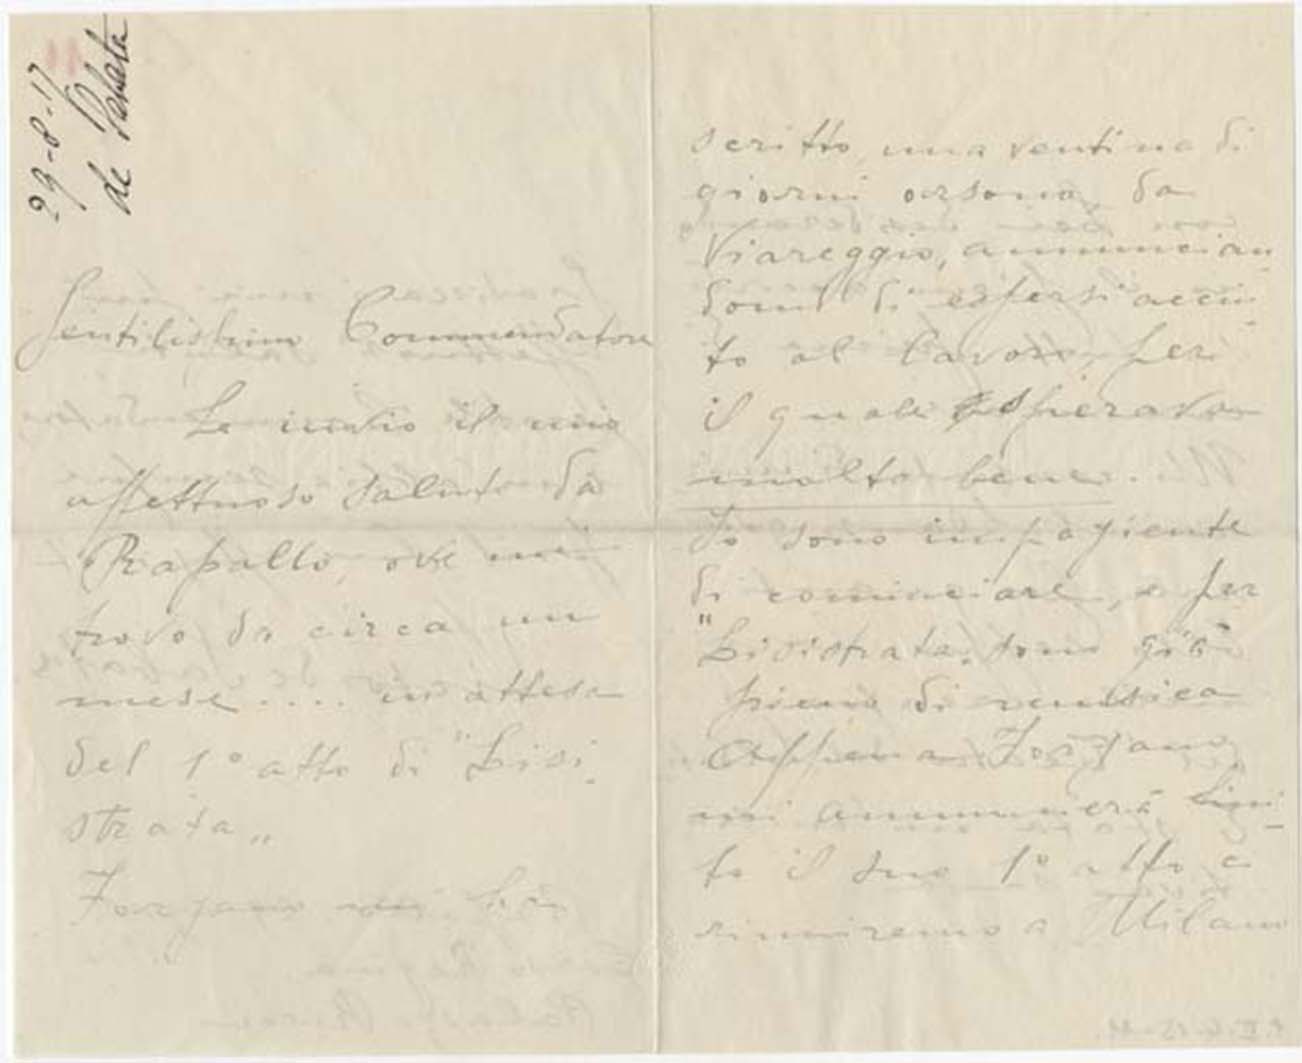 29-8-17
de Sabata
Gentilissimo Commendatore
Le invio il mio
affettuoso saluto da
Rapallo, ove mi
trovo da circa un
mese.... in attesa
del 1° atto di "Lisi-
strata„
Forzano mi ha
scritto, una ventina di
giorni orsono, da
Viareggio, annuncian-
domi di essersi accin-
to al lavoro, per
il quale sperava
molto bene.
Io sono impaziente
di cominciare, e per
"Lisistrata„ sono già
pieno di musica
Appena Forzano
mi annuncerà fini-
to il suo 1° atto ci
riuniremo a Milano